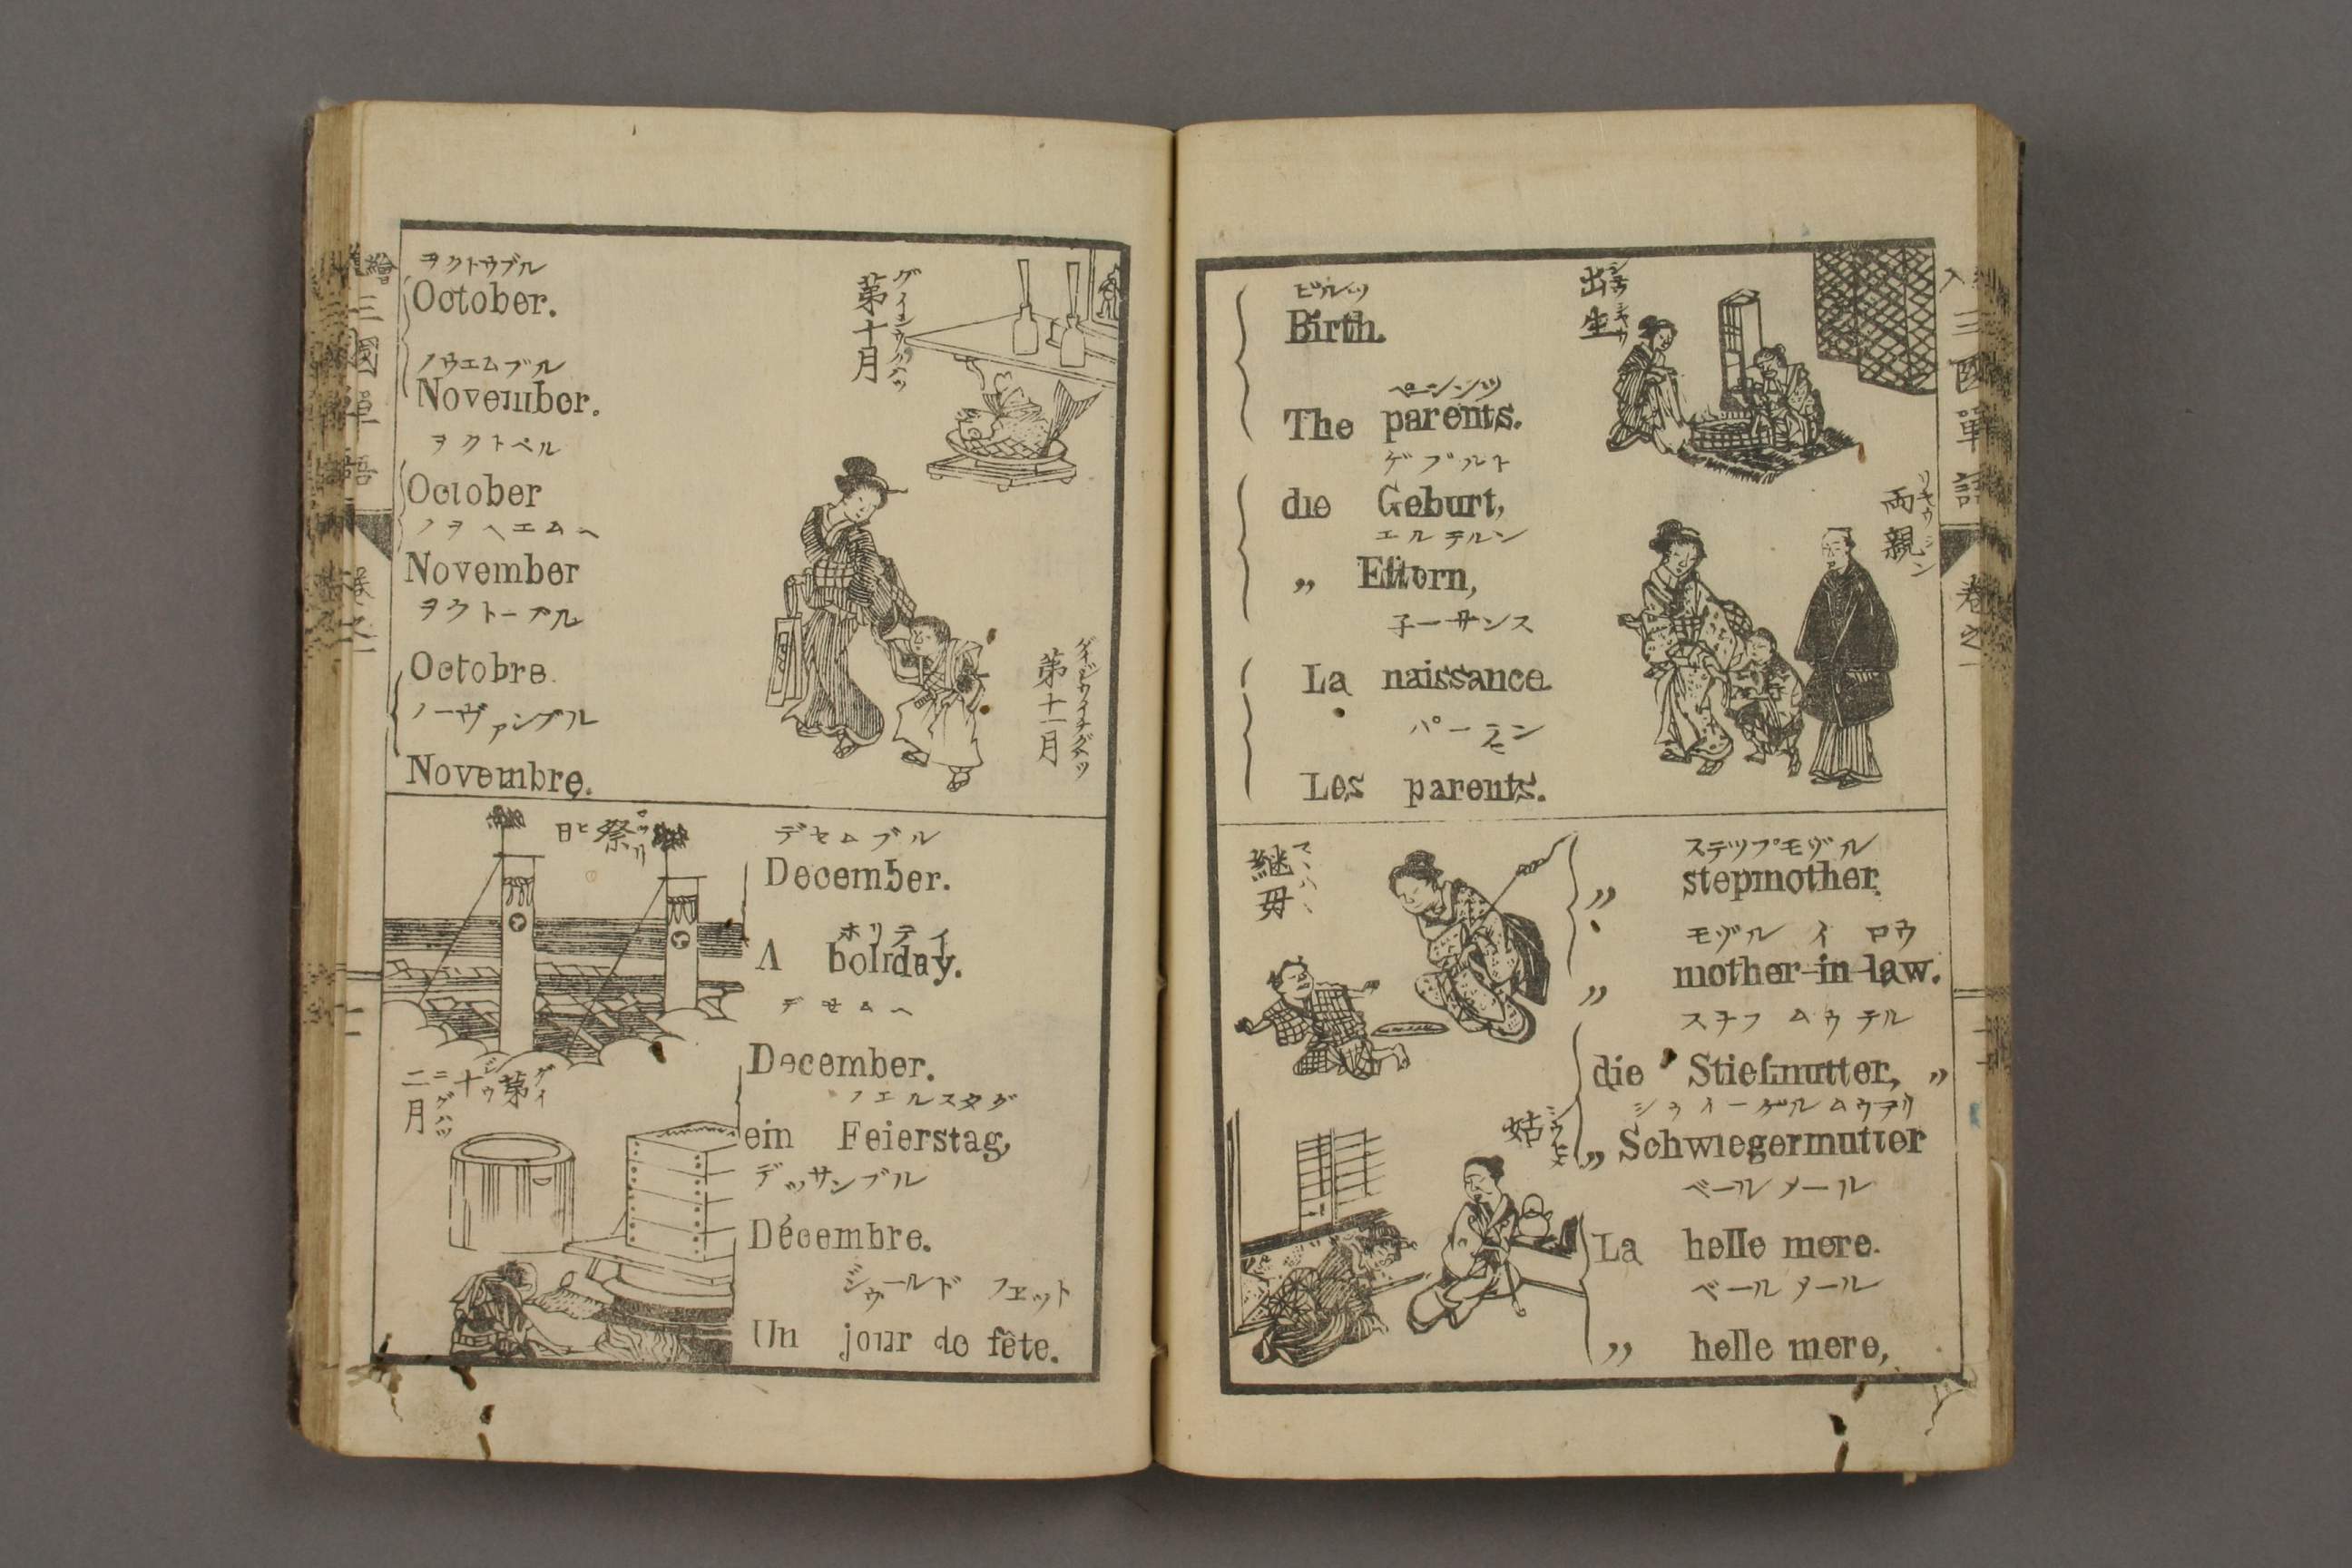 ヲクトウブル
October.
ノウエムブル
November.
ヲクトベル
October
ノヲヘエムヘ
November
ヲウトーブル
Octobre.
ノーヴァンブル
Novembre.
第十月
第十一月
祭日
デセムブル
December.
ホリデイ
A holiday.
デセムヘ
December.
フエルスタグ
ein Feierstag,
デッサンブル
Décembre.
ジゥールド フエット
Un jour de fête.
第十二月
ビルツ
Birth.
The parents.
ゲブルト
die Geburt,
エルテルン
„ Eltern,
子ーサンス
La naissance.
Les parents.
出生
両親
ステップモヅル
„ stepmother.
モヅル イ ロウ
„ mother-in-law.
スチフ ムウテル
die Stiefmutter, „
„ Schwiegermutter
ベール メール
La helle mere.
ベール メール
„ helle mere,
継母
姑
三國單語
巻之一